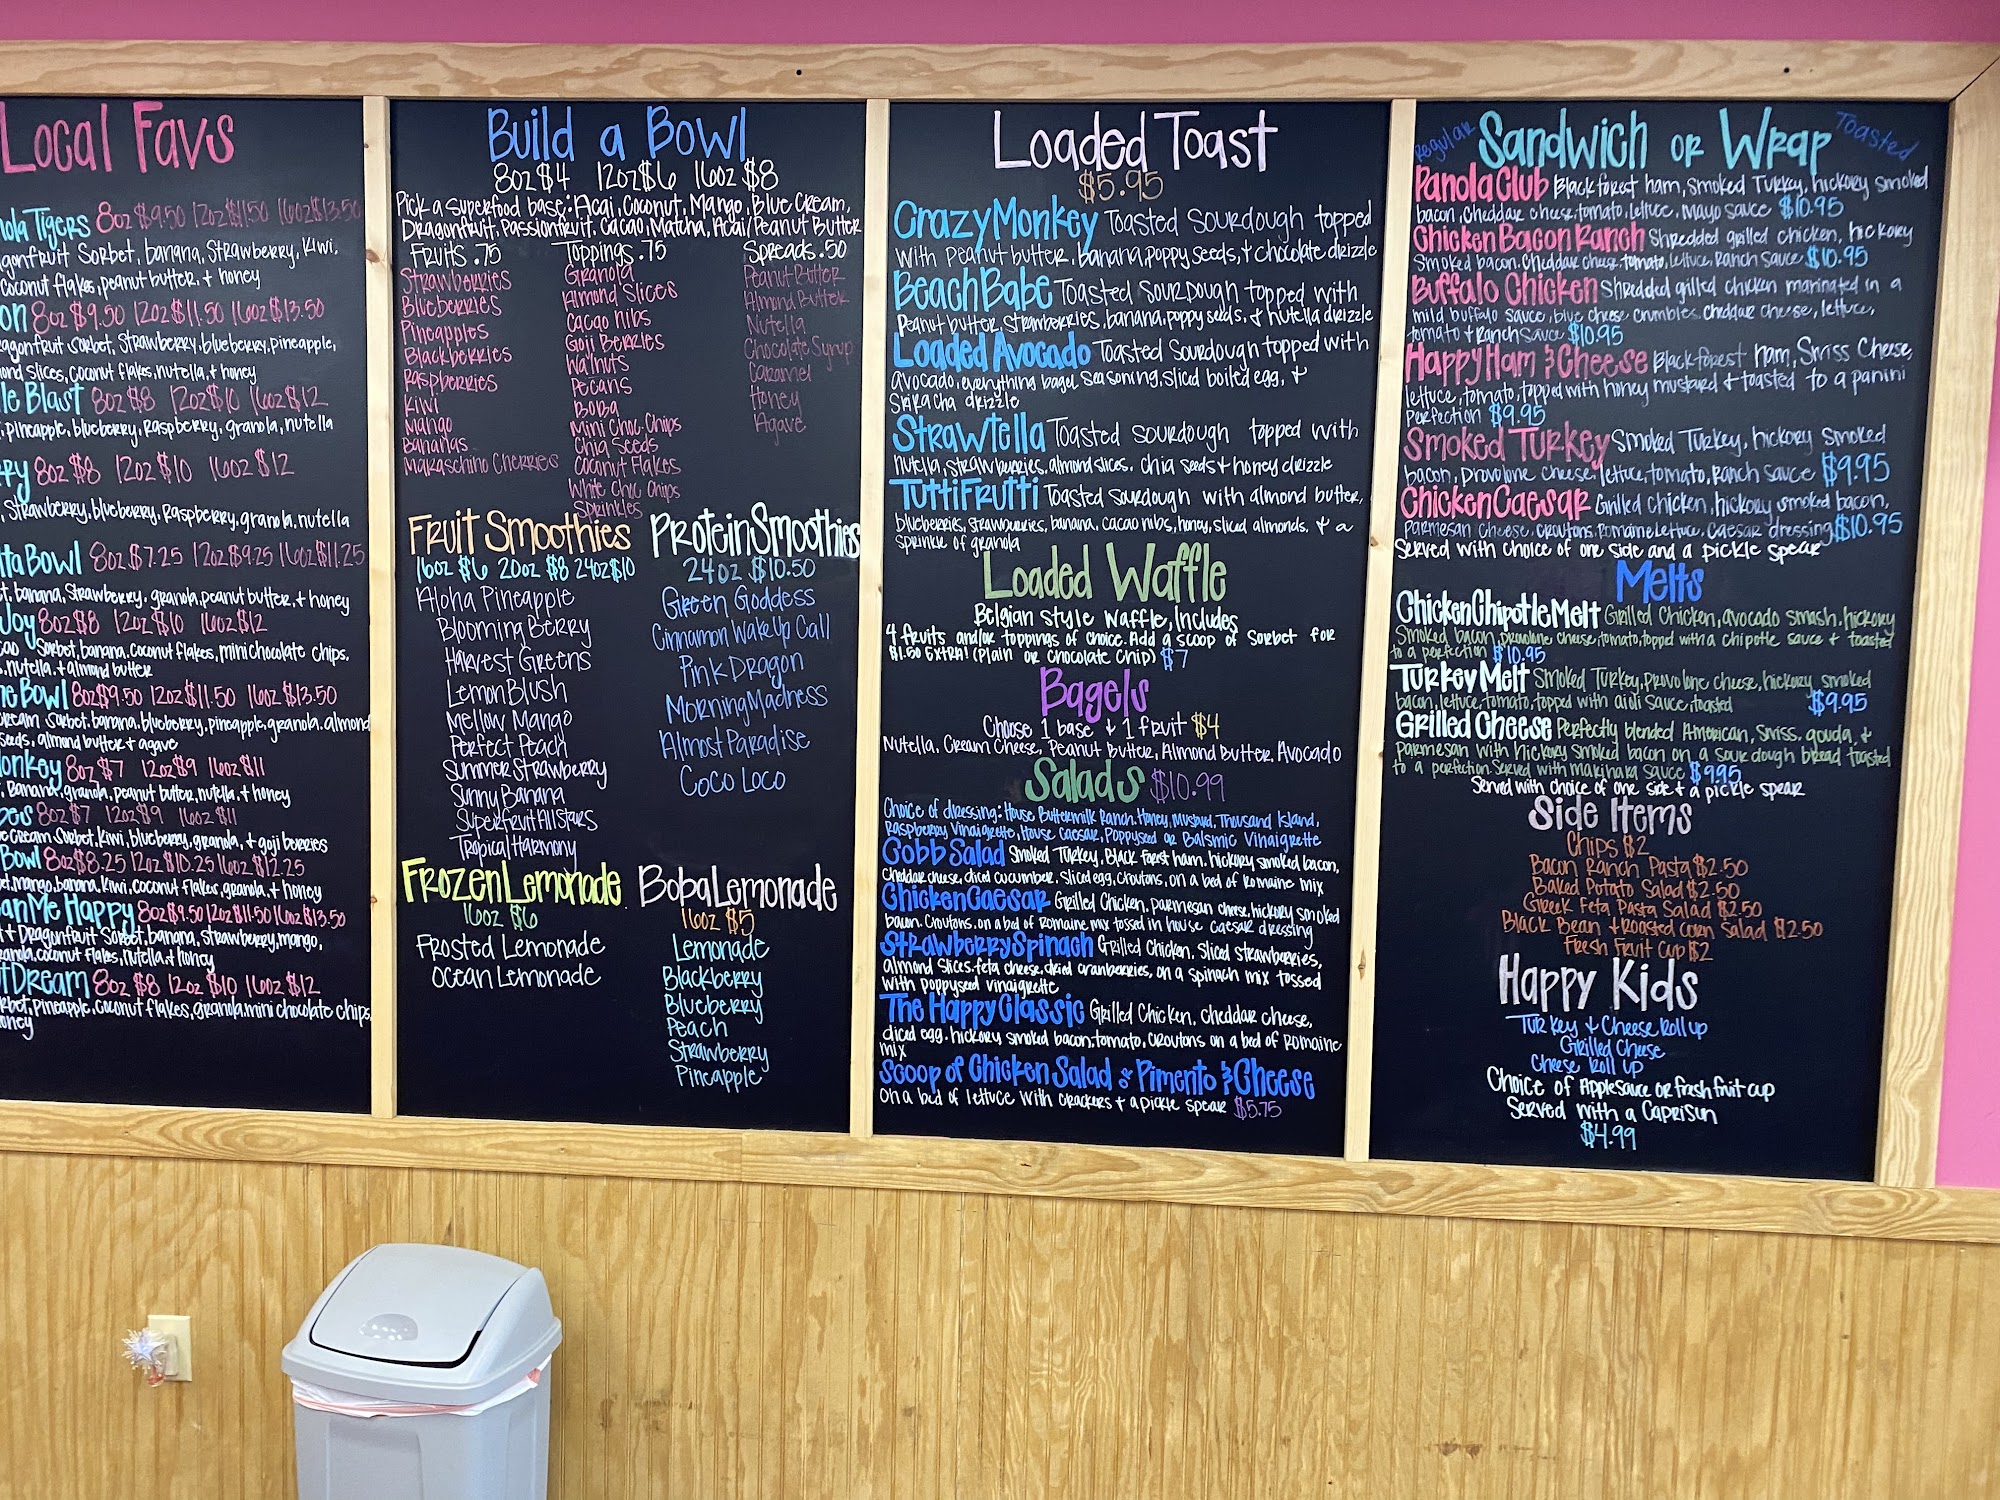 Local Favs
nola Tigers 8oz $9.50 12oz $11.50 16oz $13.50
agonfruit Sorbet, banana, Strawberry, Kiwi,
coconut flakes, peanut butter, + honey
on 8oz $9.50 12oz $11.50 16oz $13.50
agonfruit Sorbet, Strawberry, blueberry, pineapple,
ond slices, coconut flakes, nutella, + honey
le Blast 8oz $8 12oz $10 16oz $12
, pineapple, blueberry, Raspberry, granola, nutella
rry 8oz $8 12oz $10 16oz $12
, Strawberry, blueberry, Raspberry, granola, nutella
ta Bowl 8oz $7.25 12oz $9.25 16oz $11.25
t, banana, Strawberry, granola, peanut butter, + honey
Joy 8oz $8 12oz $10 16oz $12
cao Sorbet, banana, Coconut flakes, mini chocolate chips,
s, nutella, + almond butter
ne Bowl 8oz $9.50 12oz $11.50 16oz $13.50
cream Sorbet, banana, blueberry, pineapple, granola, almond
seeds, almond butter + agave
onkey 8oz $7 12oz $9 16oz $11
, Banana, granola, peanut butter, nutella, + honey
bes 8oz $7 12oz $9 16oz $11
ue Cream Sorbet, Kiwi, blueberry, granola, + goji berries
Bowl 8oz $8.25 12oz $10.25 16oz $12.25
et, mango, banana, Kiwi, coconut flakes, granola, + honey
an Me Happy 8oz $9.50 12oz $11.50 16oz $13.50
t + Dragonfruit Sorbet, banana, Strawberry, mango,
anola, coconut flakes, nutella + honey
t Dream 8oz $8 12oz $10 16oz $12
rbet, pineapple, coconut flakes, granola, mini chocolate chips,
oney
Build a Bowl
8oz $4 12oz $6 16oz $8
Pick a Superfood base: Acai, Coconut, Mango, Blue Cream,
Dragonfruit, Passionfruit, Cacao, Matcha, Acai/Peanut Butter
Fruits .75
Strawberries
Blueberries
Pineapples
Blackberries
Raspberries
Kiwi
Mango
Bananas
Maraschino Cherries
Toppings .75
Granola
Almond Slices
Cacao nibs
Goji Berries
Walnuts
Pecans
Boba
Mini Choc Chips
Chia Seeds
Coconut Flakes
White Choc Chips
Sprinkles
Spreads .50
Peanut Butter
Almond Butter
Nutella
Chocolate Syrup
Caramel
Honey
Agave
Fruit Smoothies
16oz $6 20oz $8 24oz $10
Aloha Pineapple
Blooming Berry
Harvest Greens
Lemon Blush
Mellow Mango
Perfect Peach
Summer Strawberry
Sunny Banana
Superfruit Allstars
Tropical Harmony
Protein Smoothies
24oz $10.50
Green Goddess
Cinnamon Wake Up Call
Pink Dragon
Morning Madness
Almost Paradise
Coco Loco
Frozen Lemonade
16oz $6
Frosted Lemonade
Ocean Lemonade
Boba Lemonade
16oz $5
Lemonade
Blackberry
Blueberry
Peach
Strawberry
Pineapple
Loaded Toast
$5.95
Crazy Monkey Toasted Sourdough topped
with Peanut butter, banana, poppy seeds, + chocolate drizzle
Beach Babe Toasted Sourdough topped with
Peanut butter, Strawberries, banana, poppy seeds, + nutella drizzle
Loaded Avocado Toasted Sourdough topped with
avocado, everything bagel seasoning, sliced boiled egg, +
Sriracha drizzle
Strawtella Toasted sourdough topped with
nutella, strawberries, almond slices, chia seeds + honey drizzle
Tutti Frutti Toasted sourdough with almond butter,
blueberries, strawberries, banana, cacao nibs, honey, sliced almonds, + a
sprinkle of granola
Loaded Waffle
Belgian style waffle, Includes
4 fruits and/or toppings of choice. Add a scoop of sorbet for
$1.50 extra! (Plain or Chocolate Chip) $7
Bagels
Choose 1 base + 1 fruit $4
Nutella, Cream Cheese, Peanut Butter, Almond Butter, Avocado
Salads $10.99
Choice of dressing: House Buttermilk Ranch, Honey Mustard, Thousand Island,
Raspberry Vinaigrette, House Caesar, Poppyseed or Balsmic Vinaigrette
Cobb Salad Smoked Turkey, Black forest ham, hickory smoked bacon,
cheddar cheese, diced cucumber, sliced egg, croutons, on a bed of Romaine mix
Chicken Caesar Grilled Chicken, parmesan cheese, hickory smoked
bacon, croutons, on a bed of Romaine mix tossed in house caesar dressing
Strawberry Spinach Grilled Chicken, Sliced strawberries,
almond slices, feta cheese, dried cranberries, on a spinach mix tossed
with poppyseed vinaigrette
The Happy Classic Grilled Chicken, cheddar cheese,
diced egg, hickory smoked bacon, tomato, croutons on a bed of Romaine
mix
Scoop of Chicken Salad or Pimento & Cheese
on a bed of lettuce with crackers + a pickle spear $5.75
Regular Sandwich or Wrap Toasted
Panola Club Black forest ham, Smoked Turkey, hickory smoked
bacon, cheddar cheese, tomato, lettuce, mayo sauce $10.95
Chicken Bacon Ranch Shredded grilled chicken, hickory
smoked bacon, cheddar cheese, tomato, lettuce, Ranch sauce $10.95
Buffalo Chicken Shredded grilled chicken marinated in a
mild buffalo sauce, blue cheese crumbles, cheddar cheese, lettuce,
tomato + Ranch Sauce $10.95
Happy Ham & Cheese Black forest ham, Swiss Cheese,
lettuce, tomato, topped with honey mustard + toasted to a panini
perfection $9.95
Smoked Turkey Smoked Turkey, hickory smoked
bacon, provolone cheese, lettuce, tomato, Ranch sauce $9.95
Chicken Caesar Grilled chicken, hickory smoked bacon,
parmesan cheese, croutons, Romaine Lettuce, Caesar dressing $10.95
Served with choice of one side and a pickle spear
Melts
Chicken Chipotle Melt Grilled Chicken, avocado smash, hickory
smoked bacon, provolone cheese, tomato, topped with a chipotle sauce + toasted
to a perfection $10.95
Turkey Melt Smoked Turkey, provolone cheese, hickory smoked
bacon, lettuce, tomato, topped with aioli sauce, toasted $9.95
Grilled Cheese Perfectly blended American, Swiss, gouda, +
parmesan with hickory smoked bacon on a sourdough bread toasted
to a perfection. Served with marinara sauce $9.95
Served with choice of one side + a pickle spear
Side Items
Chips $2
Bacon Ranch Pasta $2.50
Baked Potato Salad $2.50
Greek Feta Pasta Salad $2.50
Black Bean + Roasted Corn Salad $2.50
Fresh Fruit Cup $2
Happy Kids
Turkey + Cheese Roll up
Grilled Cheese
Cheese Roll Up
Choice of Applesauce or fresh fruit cup
Served with a Caprisun
$4.99